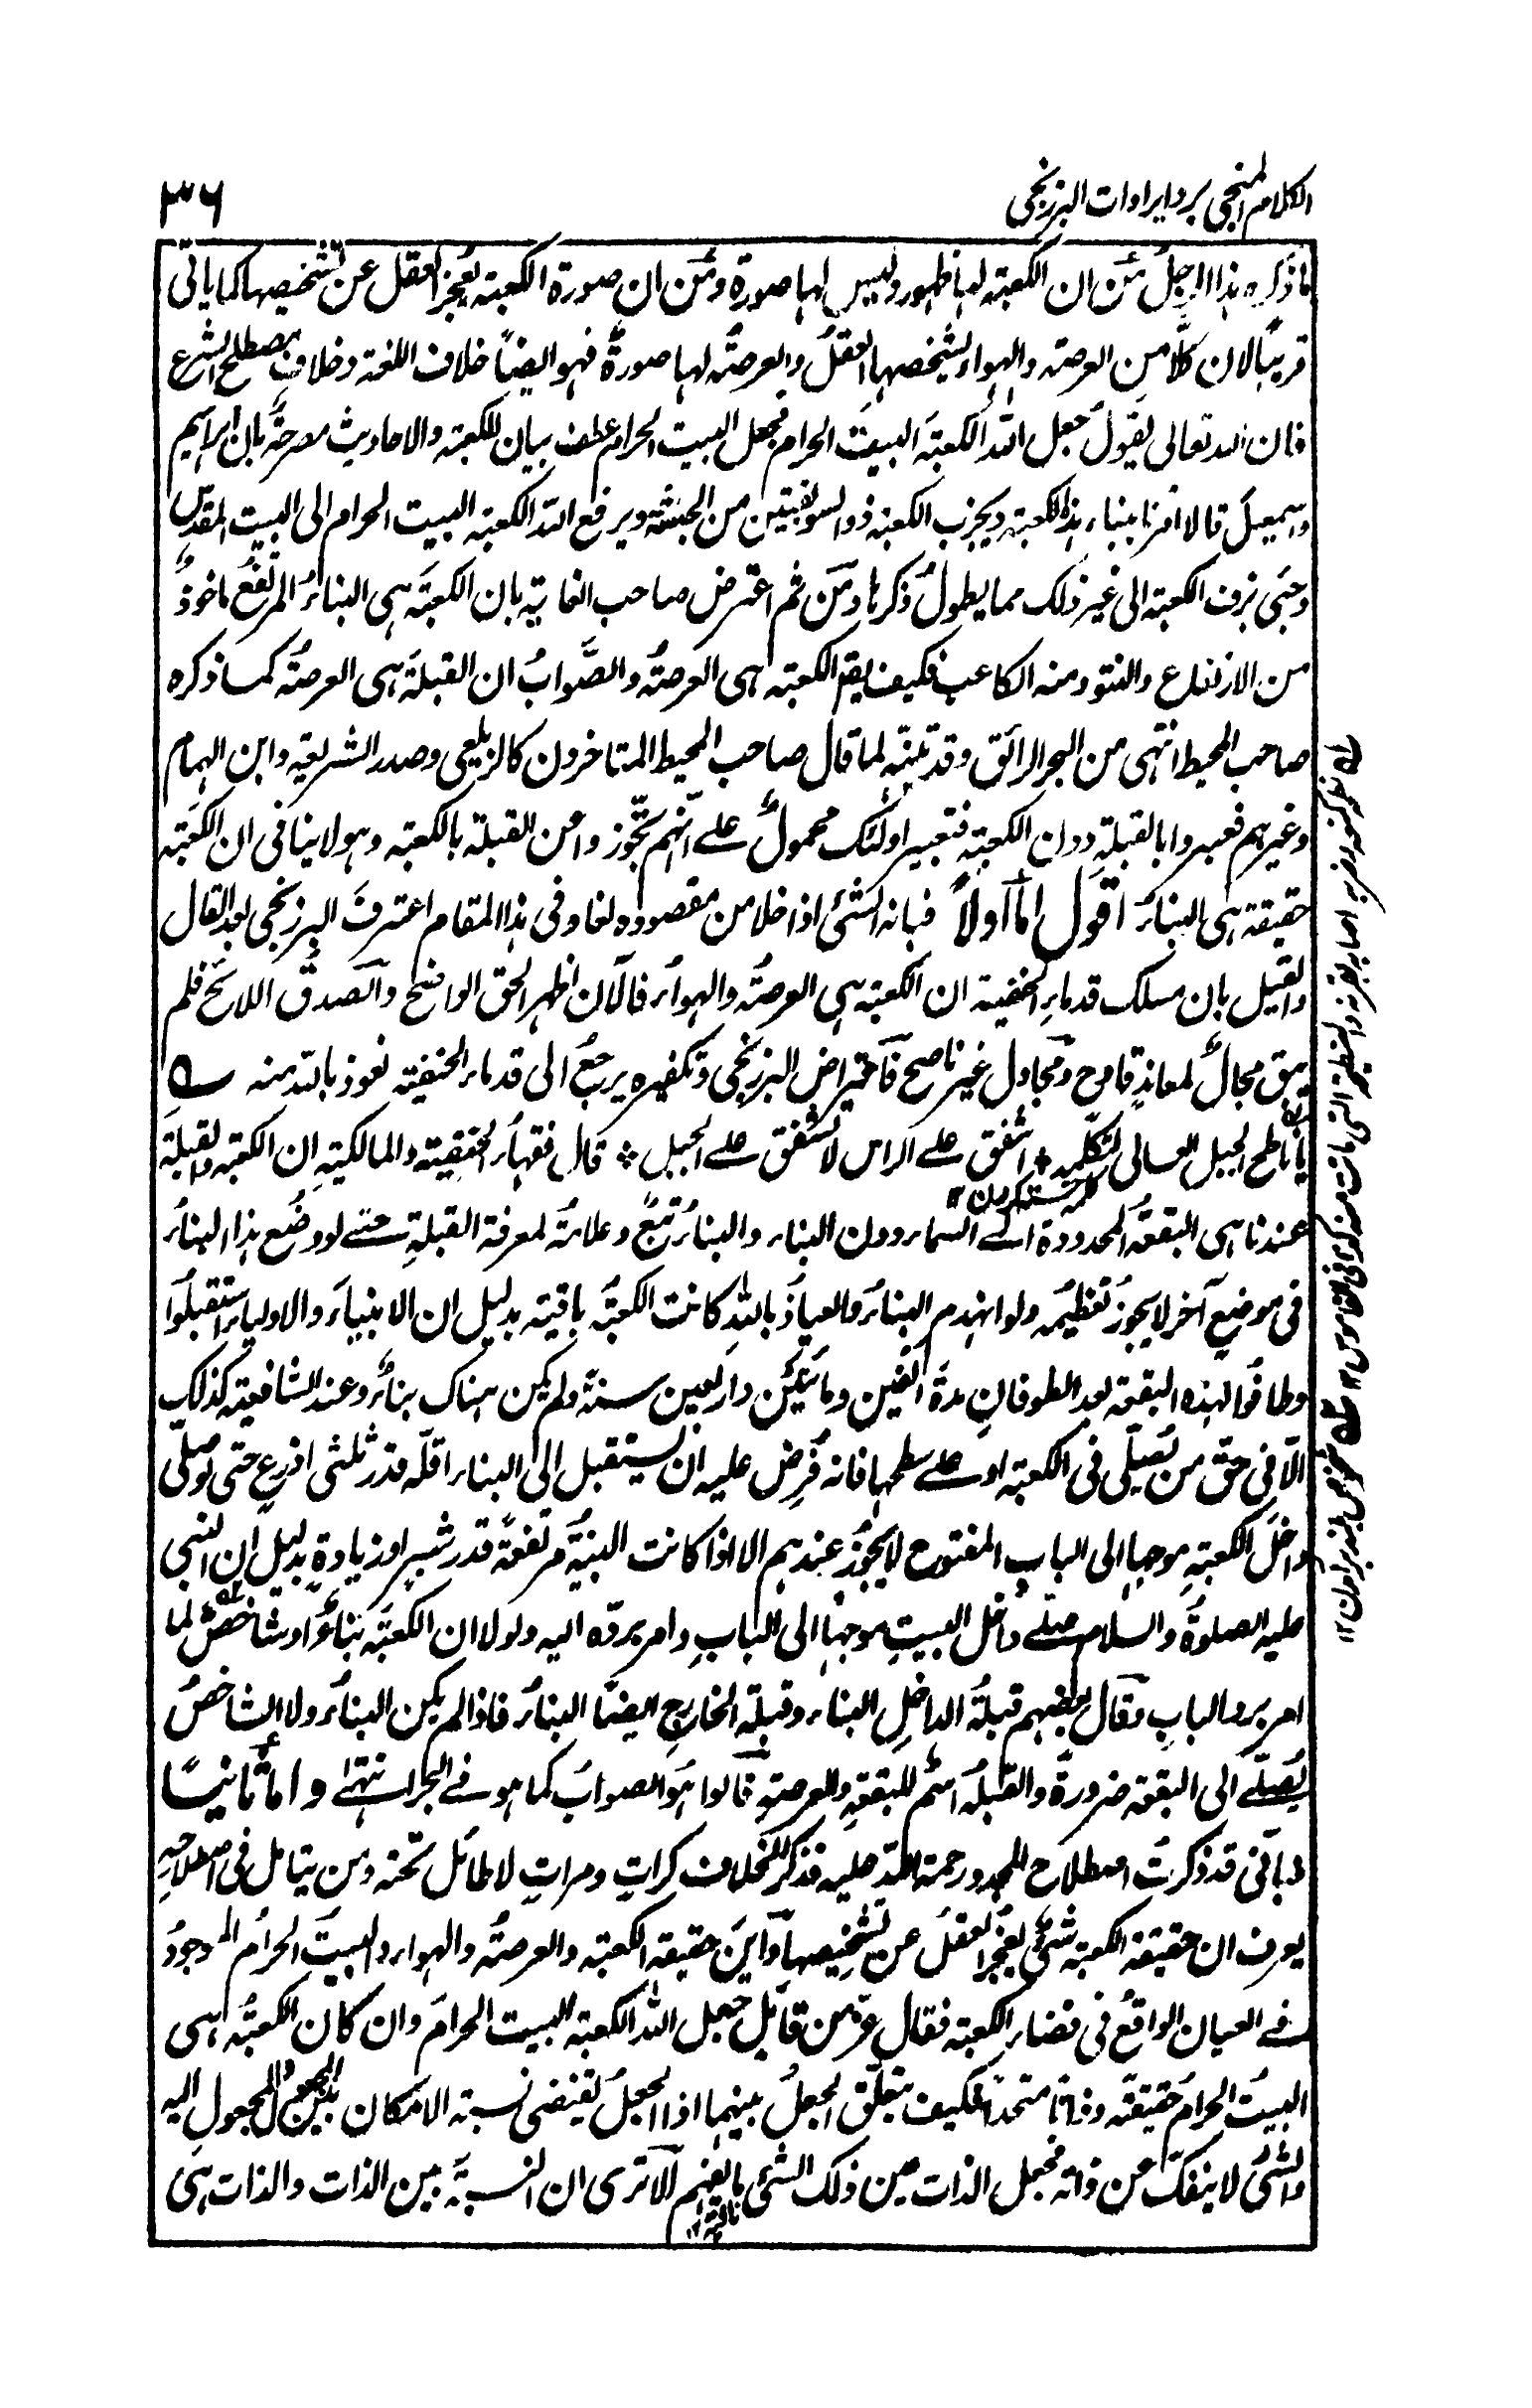 الکلام المنجی برد ایرادات البرزنجی
۳۶
ما ذکره هذا الرجل من ان الکعبة لها ظهور ولیس لها صورة ومن ان صورة الکعبة یعجز العقل عن تشخیصها کما یاتی
قریبا لان کلا من العرصة والهواء یشخصها العقل والعرصة لها صورة فهو ایضا خلاف اللغة وخلاف مصطلح الشرع
فان الله تعالی یقول جعل الله الکعبة البیت الحرام فجعل البیت الحرام عطف بیان للکعبة والاحادیث مصرحة بان ابراهیم
واسمعیل قالا امرنا ببناء هذه الکعبة ویخرب الکعبة ذو السویقتین من الحبشة ویرفع الله الکعبة البیت الحرام الی البیت المقدس
الکعبة الی غیر ذلک مما یطول ذکرها ومن ثم اعترض صاحب الغایة بان الکعبة هی البناء المرتفع ماخوذ
من الارتفاع والنتو ومنه الکاعب فکیف یقم الکعبة هی العرصة والصواب ان القبلة هی العرصة کما ذکره
صاحب المحیط انتهی من البحر الرائق وقد تنبه لما قال صاحب المحیط المتاخرون کالزیلعی وصدر الشریعة وابن الهمام
وغیرهم فعبروا بالقبلة دون الکعبة فتعبیر اولئک محمول علے انهم تجوزوا من القبلة بالکعبة وهو لا ینافی ان الکعبة
حقیقة هی البناء اقول اما اولا فبانه الشئ اذا خلا من مقصوده لغا وفی هذا المقام اعترف البرزنجی بعد القال
والقیل بان مسلک قدماء الحنفیة ان الکعبة هی العرصة والهواء فالآن اظهر الحق الواضح والصدق اللائح فلم
یبق مجال لمعاند قامح ومجادل غیر ناصح فاعتراض البرزنجی وتکفیره یرجع الی قدماء الحنفیة نعوذ بالله منه
یا ناطح الجبل العالی لتکلمه * اشفق علے الراس لا تشفق علے الجبل * قال فقهاء الحنفیة والمالکیة ان الکعبة والقبلة
عندنا هی البقعة المحدودة الے السماء دون البناء والبناء تبع وعلامة لمعرفة القبلة حتے لو وضع هذا البناء
فی موضع آخر لا یجوز تعظیمه ولو انهدم البناء والعیاذ بالله کانت الکعبة باقیة بدلیل ان الانبیاء والاولیاء استقبلوا
وطافوا لهذه البقعة بعد الطوفان مدة الفین ومائتین واربعین سنة ولم یکن هناک بناء وعند الشافعیة کذلک
الا فی حق من یصلی فی الکعبة او علے سطحها فانه فرض علیه ان یستقبل الی البناء اقله قدر ثلثی اذرع حتی لو صلی
داخل الکعبة موجها الی الباب المفتوح لا یجوز عندهم الا اذا کانت البنیة مرتفعة قدر شبر او زیادة بدلیل ان النبی
علیه الصلوة والسلام صلے داخل البیت موجها الی الباب وامر برده الیه ولولا ان الکعبة بناء او شاخص لما
امر برد الباب وقال بعضهم قبلة الداخل البناء وقبلة الخارج ایضا البناء فاذا لم یکن البناء ولا الشاخص
یصلے الی البقعة ضرورة والقبلة اسم للبقعة والعرصة قالوا هو الصواب کما هو فے البحر انتهے واما ثانیا
فبانی قد ذکرت اصطلاح المجدد رحمة الله علیه فذکر الخلاف کرات ومرات لا طائل تحته ومن یتامل فی اصطلاحه
یعرف ان حقیقة الکعبة شئ یعجز العقل عن تشخیصها واین حقیقة الکعبة والعرصة والهواء والبیت الحرام الموجود
فے العیان الواقع فی فضاء الکعبة فقال عز من قائل جعل الله الکعبة البیت الحرام وان کان الکعبة هی
البیت الحرام حقیقة وذاتا متحدا فکیف یتعلق الجعل بینهما اذا الجعل یقتضی نسبة الامکان بین المجعول المجعول الیه
والشئ لا ینفک عن ذاته فجعل الذات عین ذلک الشئ الا تری ان النسبة بین الذات والذات هی